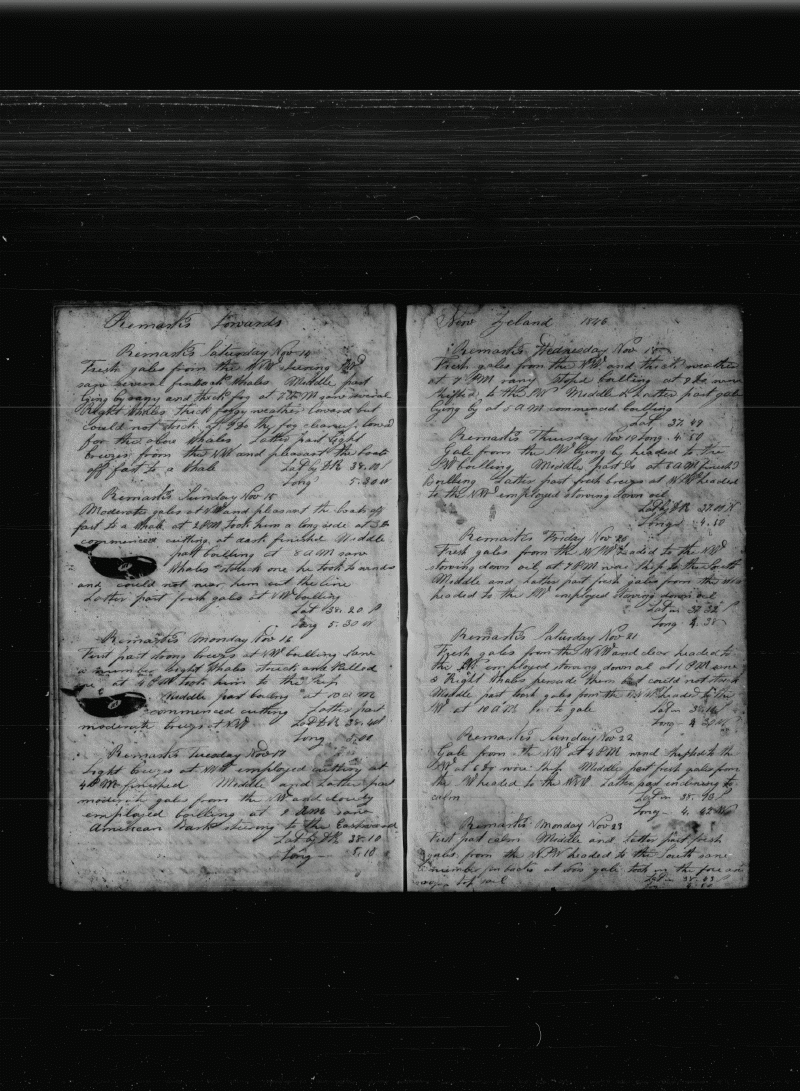 Remarks towards
Remarks Saturday Nov 14
Fresh gales from the NW steering
saw several finback Whales Middle part
lying by and thick fog at 7 AM saw several
Right Whales thick foggy weather lowerd but
could not strick at 9 Do the fog cleanup lowerd
for the above Whales Latter part light
breezes from the NW and pleasant the boats
off fast to a Whale Lat by DR 38.10
Long 5.30 W
Remarks Sunday Nov 15
Moderate gales at NW and pleasant the boats off
fast to a Whale at 2 PM took him a long side at 3 Do
commenced cutting at dark finished Middle
part boulling at 5 AM saw
Whales struck one he took to windward
and could not near him cut the line
Latter part fresh gales at NW boulling
Lat 38.20
Long 5.30 W
Remarks Monday Nov 16
First part strong breezes at NW boulling saw
a number Right Whales struck and killed
one at 4 PM took him to the Ship
Middle part boiling at 10 AM
commenced cutting Latter part
moderate breezes at NW Lat DR 38.40
Long 5.00
Remarks Tuesday Nov 17
Light breezes at NW employed cutting at
4 PM finished Middle and Latter part
moderate gales from the NW and cloudy
employed boulling at 9 AM saw
American Bark steering to the Eastward
Lat by DR 38.10
Long 5.10
New Zeland 1846
Remarks Wednesday Nov 18
Fresh gales from the NW and thick weather
at 7 PM rainy stopd boulling at 9 Do wind
shifted to the Middle & Latter part gale
lying by at 5 AM commenced boulling
Lat 37.49
Remarks Thursday Nov 19 Long 4.50
Gale from the lying by headed to the
boulling Middle part Do at 6 AM finishd
boulling Latter part fresh breezes at headed
to the NW employed stowing down oil
Lat by DR
Long 4.10
Remarks Friday Nov 20
Fresh gales from the headed to the NW
stowing down oil at 7 PM wore ship to the South
Middle and Latter part fresh gales from the
headed to the employed stowing down oil
Lat in 38.32
Long 4.38
Remarks Saturday Nov 21
Fresh gales from the NW and clear headed to
the employed stowing down oil at 1 PM saw
3 Right Whales persude them but could not strick
Middle part fresh gales from the headed to the
W at 10 AM to gale Lat in
Long 4
Remarks Sunday Nov 22
Gale from the NW at 4 PM wind shifted to the
at 6 Do wore Ship Middle part fresh gales from
the W headed to the Latter part inclineing to
calm Lat in 38.40
Long 4.42
Remarks Monday Nov 23
First part calm Middle and latter part fresh
gales from the headed to the South saw
at gale took in the fore and
top sail Lat in
Long